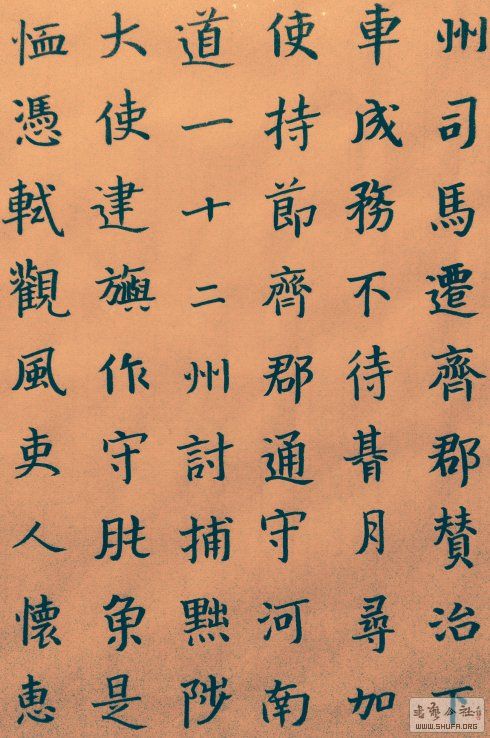 州司馬遷齊郡賛治下
車成務不待朞月尋加
使持節齊郡通守河南
道一十二州討捕黜陟
大使建旟作守是
恤憑軾觀風吏人懷惠
書藝公社
WWW.SHUFA.ORG